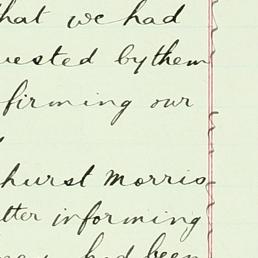 hat we had
uested by them
firming our
hurst Morris
tter informing
had been